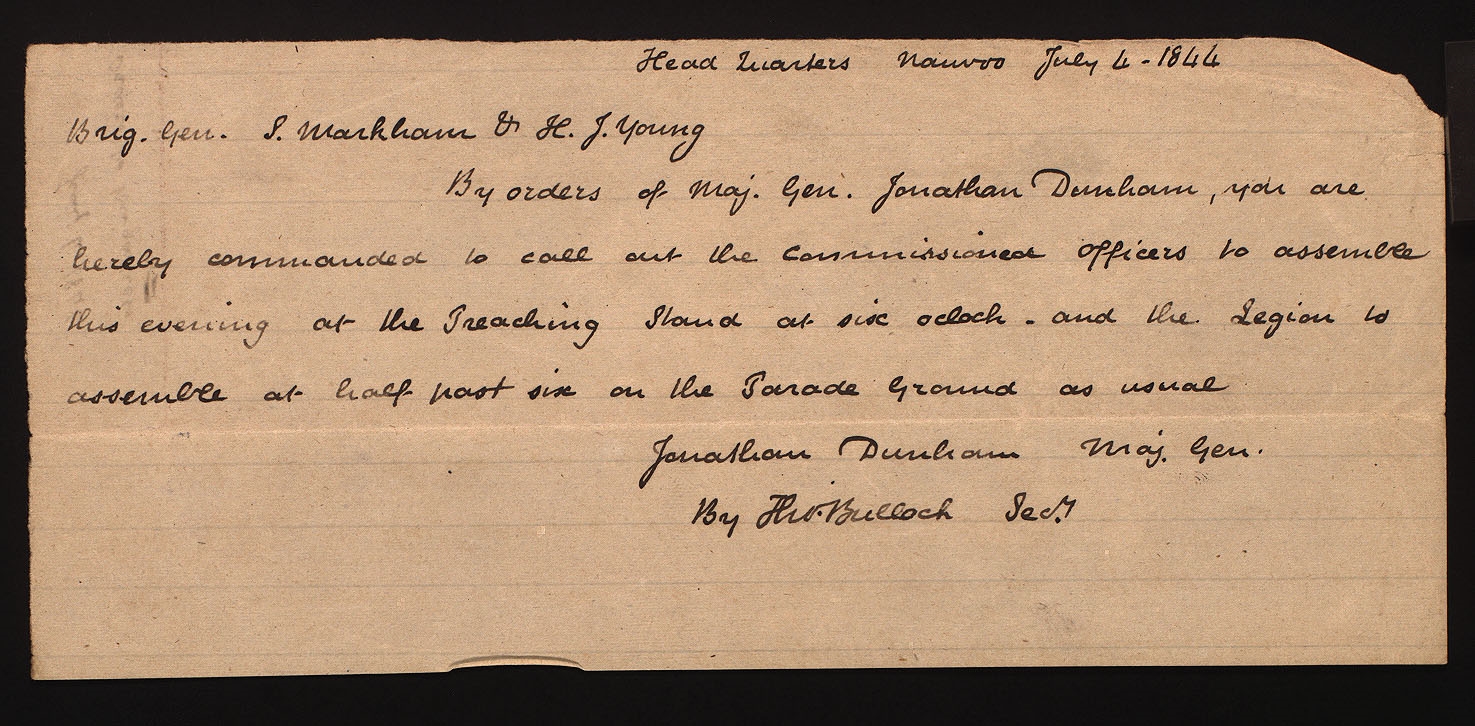 Head Quarters Nauvoo July 4 - 1844
Brig. Gen. S. Markham & H. J. Young
By orders of Maj. Gen. Jonathan Dunham, you are
hereby commanded to call out the Commissioned Officers to assemble
this evening at the Preaching Stand at six oclock - and the Legion to
assemble at half past six on the Parade Ground as usual
Jonathan Dunham Maj. Gen.
By Thos. Bullock Secy